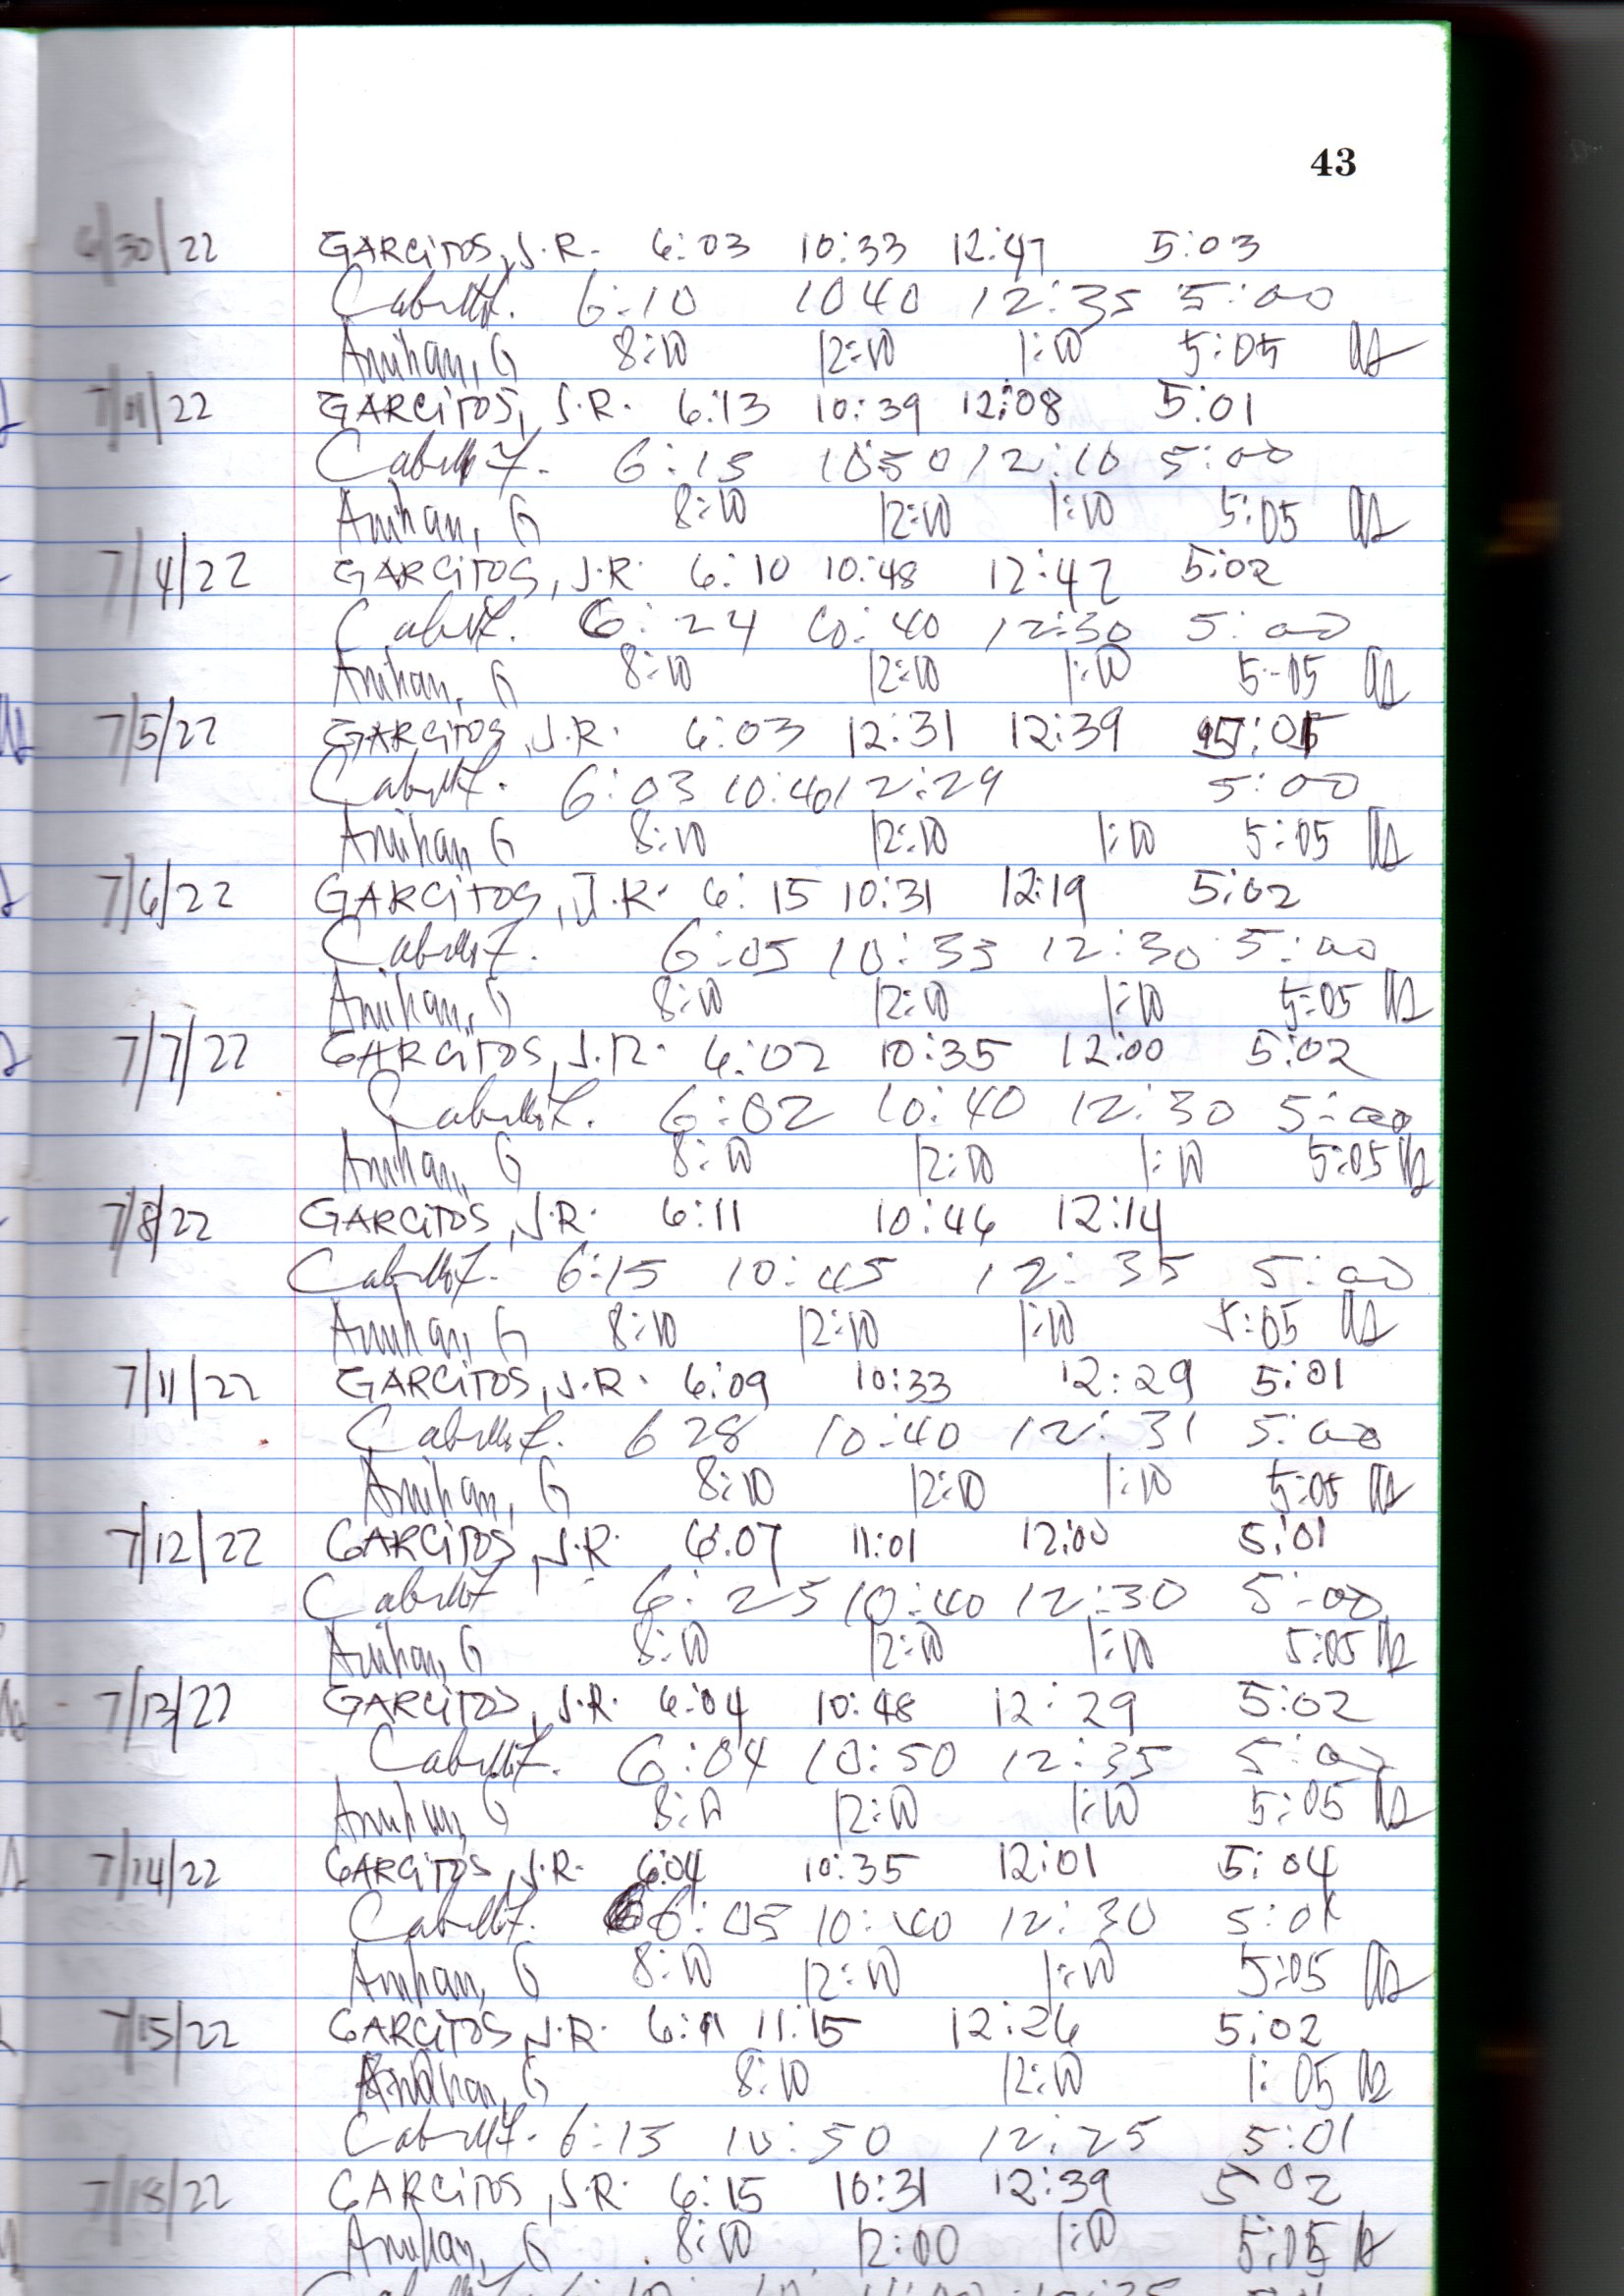 43
6/30/22 GARCITOS, J.R. 6:03 10:33 12:47 5:03
6:10 1040 12:35 5:00
Anihan, G 8:10 12:10 1:10 5:05
7/01/22 GARCITOS, J.R. 6:13 10:39 12:08 5:01
6:15 10:50 12:10 5:00
Anihan, G 8:10 12:10 1:10 5:05
7/4/22 GARCITOS, J.R. 6:10 10:48 12:42 5:02
6:24 10:40 12:30 5:00
Anihan, G 8:10 12:10 1:10 5:05
7/5/22 GARCITOS, J.R. 6:03 12:31 12:39
6:03 10:40 12:29 5:00
Anihan, G 8:10 12:10 1:10 5:05
7/6/22 GARCITOS, J.R. 6:15 10:31 12:19 5:02
6:05 10:33 12:30 5:00
Anihan, G 8:10 12:10 1:10 5:05
7/7/22 GARCITOS, J.R. 6:02 10:35 12:00 5:02
6:02 10:40 12:30 5:00
Anihan, G 8:10 12:10 1:10 5:05
7/8/22 GARCITOS, J.R. 6:11 10:46 12:14
6:15 10:45 12:35 5:00
Anihan, G 8:10 12:10 1:10 5:05
7/11/22 GARCITOS, J.R. 6:09 10:33 12:29 5:01
6 28 10:40 12:31 5:00
Anihan, G 8:10 12:10 1:10 5:05
7/12/22 GARCITOS, J.R. 6:07 11:01 12:00 5:01
6:25 10:40 12:30 5:00
Anihan, G 8:10 12:10 1:10 5:05
7/13/22 GARCITOS, J.R. 6:04 10:48 12:29 5:02
6:04 10:50 12:35 5:00
Anihan, G 8:10 12:10 1:10 5:05
7/14/22 GARCITOS, J.R. 6:04 10:35 12:01 5:04
6:05 10:40 12:30 5:01
Anihan, G 8:10 12:10 1:10 5:05
7/15/22 GARCITOS, J.R. 11:15 12:26 5:02
Anihan, G 8:10 12:10 1:05
6:15 10:50 12:25 5:01
7/18/22 GARCITOS, J.R. 6:15 10:31 12:39 5 02
Anihan, G 8:10 12:00 1:10 5:05